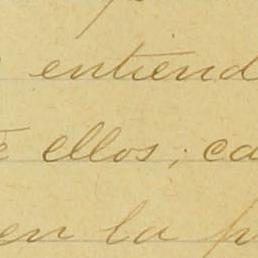 entiend
e ellos; ca
en la p